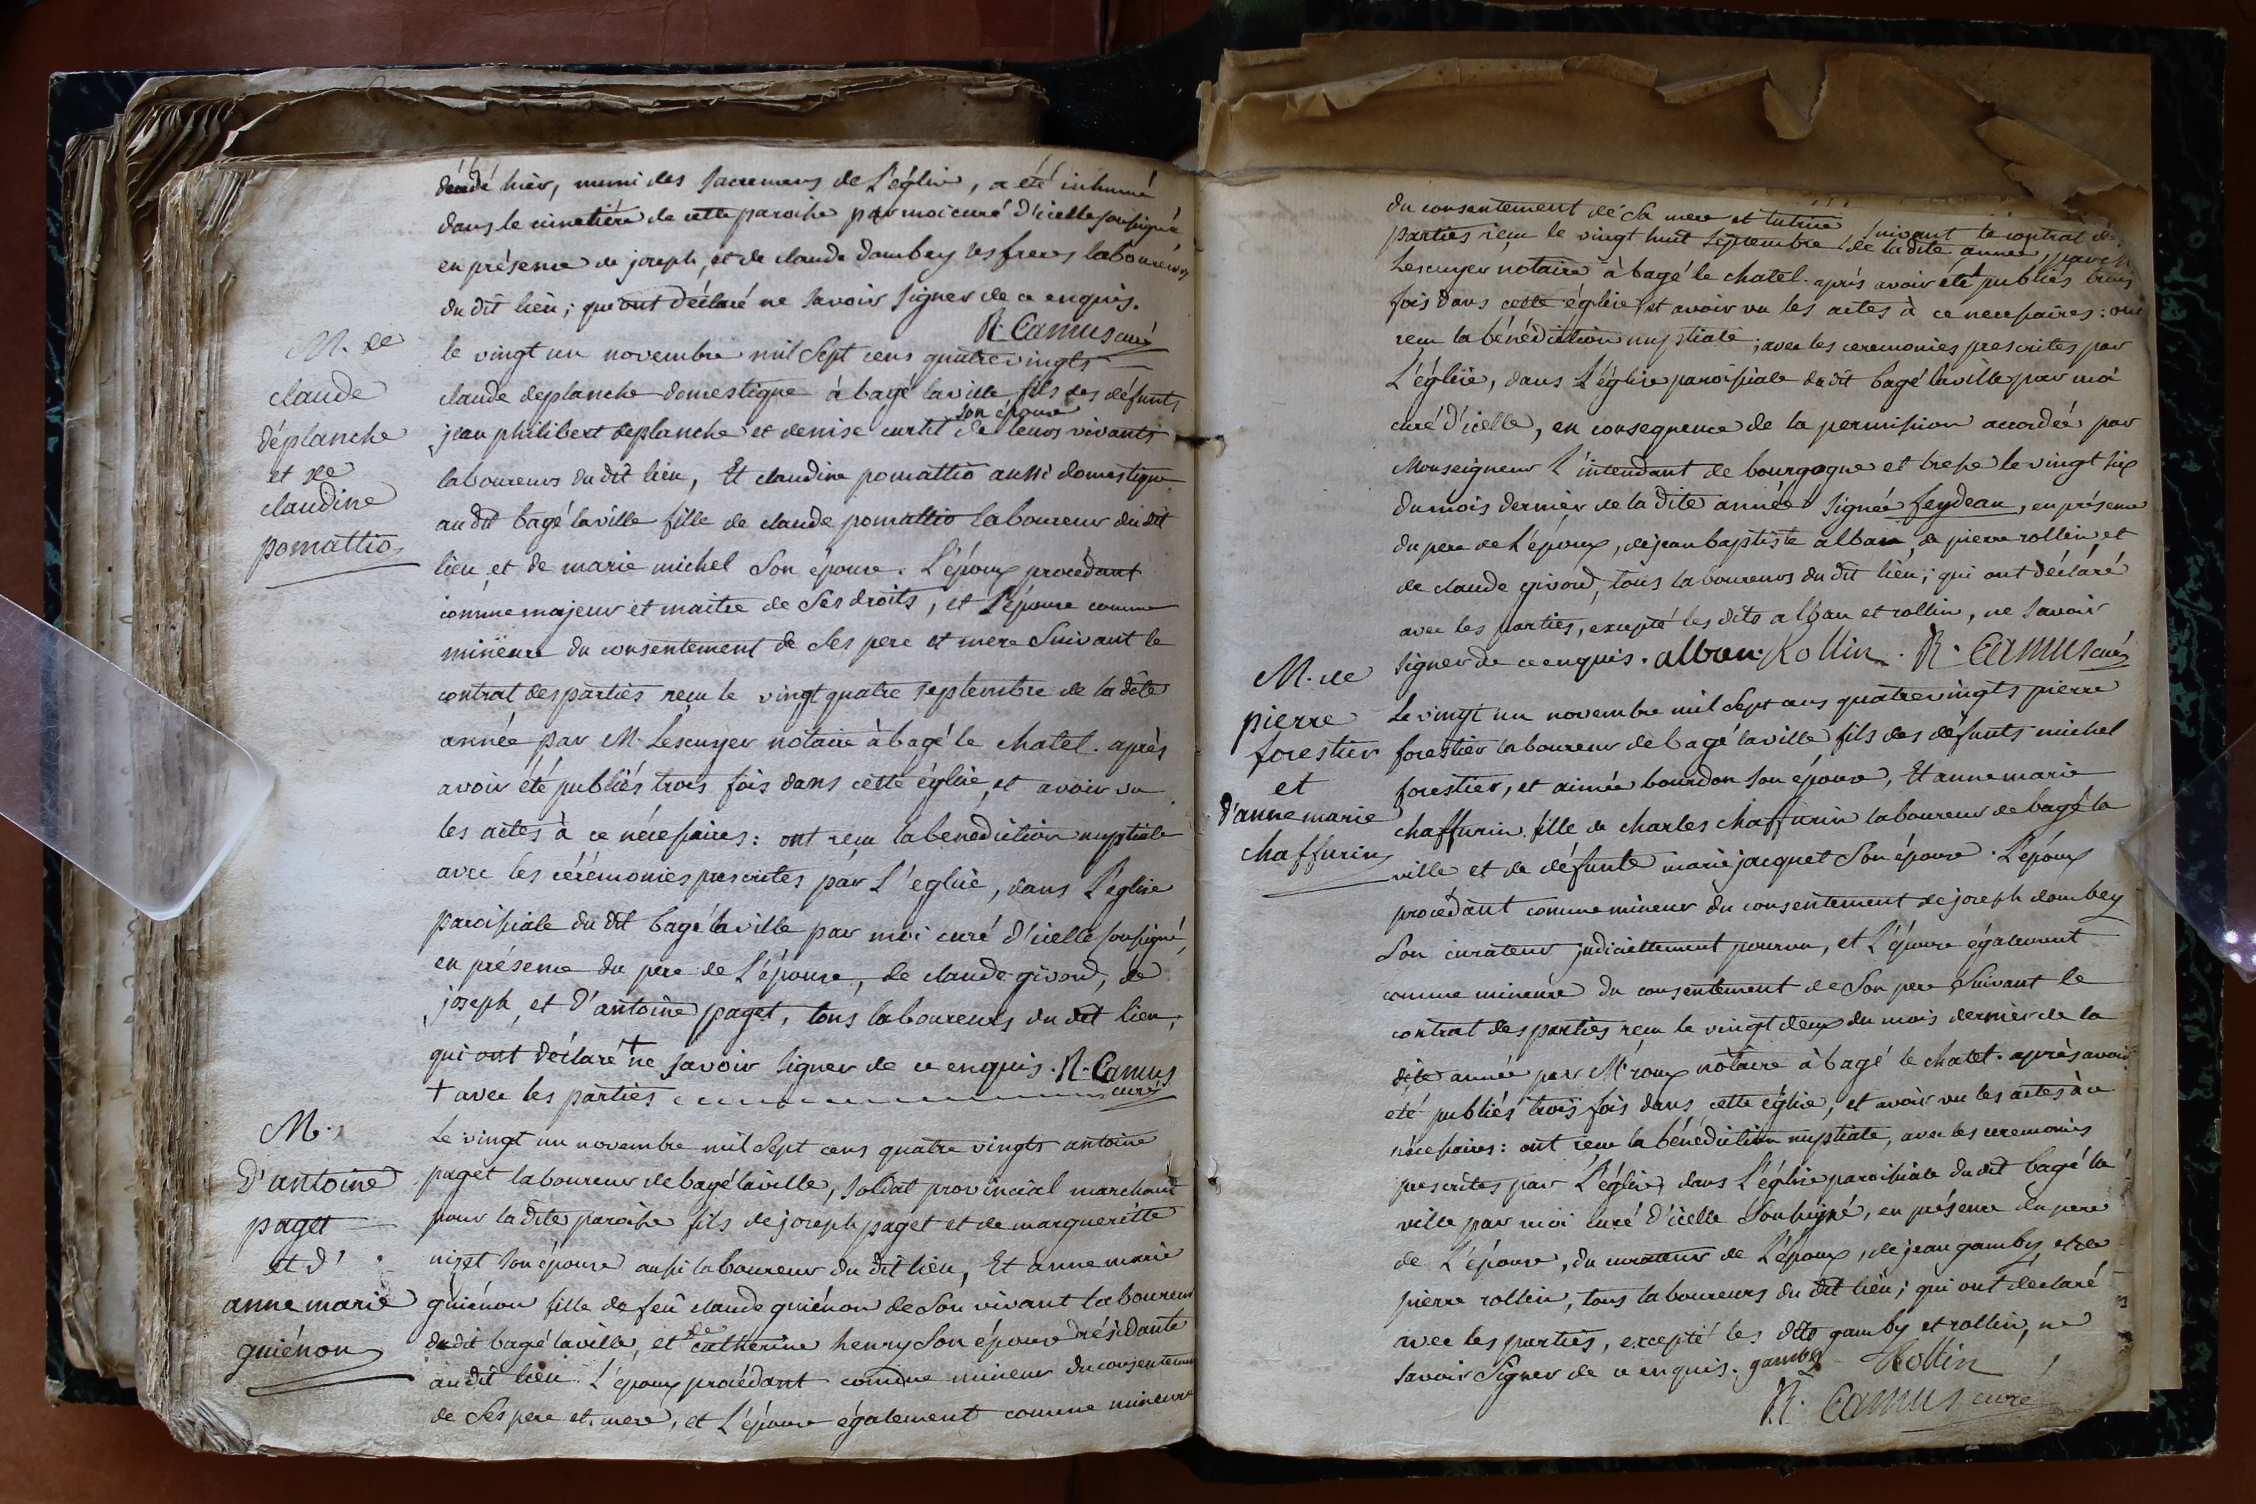 décédé hier, muni des sacremens de L'église, a été inhumé
dans le cimetière de cette paroisse par moi curé d'icelle soussigné
en présence de joseph, et de claude dombey ses freres laboureurs
du dit lieu; qui ont déclaré ne savoir signer de ce enquis.
R. Camus curé
M. de
claude
déplanche
et de
claudine
pomattio
le vingt un novembre mil sept cens quatre vingts
claude deplanche domestique à bagé laville fils des défunts
jean philibert deplanche et denise curtil son épouse de leurs vivants
laboureurs du dit lieu, Et claudine pomattio aussi domestique
au dit bagé laville fille de claude pomattio laboureur du dit
lieu et de marie michel son épouse. L'époux procédant
comme majeur et maitre de ses droits, et L'épouse comme
mineure du consentement de ses pere et mere suivant le
contrat des parties reçu le vingt quatre septembre de la dite
année par M. Lescuyer notaire à bagé le chatel. après
avoir été publiés trois fois dans cette église, et avoir vu
les actes à ce nécessaires: ont reçu la benediction nuptiale
avec les cérémonies prescrites par L'eglise, dans L'église
paroissiale du dit bagé laville par moi curé d'icelle soussigné,
en présence du pere de L'épouse, de claude givord, de
joseph, et d'antoine paget, tous laboureurs du dit lieu;
qui ont déclaré + ne savoir signer de ce enquis. R. Camus
+ avec les parties curé
M.
D'antoine
paget
et d'
anne marie
guiénon
Le vingt un novembre mil sept cens quatre vingts antoine
paget laboureur de bagé laville, soldat provincial marchant
pour la dite paroisse fils de joseph paget et de marguerite
nizet son épouse aussi laboureur du dit lieu, Et anne marie
guiénon fille de feu claude guiénon de son vivant laboureur
du dit bagé laville, et de catherine henry son épouse résidante
au dit lieu L'époux procédant comme mineur du consentement
de ses pere et mere, et L'épouse également comme mineure
du consentement de sa mere et tutrice suivant le contrat des
parties reçu le vingt huit septembre de la dite année par
Lescuyer notaire à bagé le chatel. après avoir été publiés trois
fois dans cette église et avoir vu les actes à ce necessaires: ont
reçu la bénédiction nuptiale; avec les ceremonies prescrites par
L'église, dans L'église paroissiale du dit bagé laville par moi
curé d'icelle, en consequence de la permission accordée par
Monseigneur L'intendant de bourgogne et bresse le vingt six
du mois dernier de la dite année signée feydeau, en présence
du pere de L'époux, de jean baptiste alban, de pierre rollin et
de claude givord, tous laboureurs du dit lieu; qui ont déclaré
avec les parties, excepté les dits alban et rollin, ne savoir
signer de ce enquis. alban. Rollin. R. Camus curé
M. de
pierre
forestier
et
d'anne marie
chaffurin
Le vingt un novembre mil sept cens quatre vingts pierre
forestier laboureur de bagé laville fils des défunts michel
forestier, et aimée bourdon son épouse, Et anne marie
chaffurin fille de charles chaffurin laboureur de bagé la
ville et de défunte marie jacquet son épouse. L'époux
procédant comme mineur du consentement de joseph dombey
son curateur judiciellement pourvu, et L'épouse également
comme mineure du consentement de son pere suivant le
contrat des parties reçu le vingt deux du mois dernier de la
dite année par Mr. roux notaire à bagé le chatel. après avoir
été publiés trois fois dans cette église, et avoir vu les actes à ce
nécessaires: ont reçu la bénédiction nuptiale, avec les ceremonies
prescrites par L'église, dans L'église paroissiale du dit bagé la
ville par moi curé d'icelle soussigné, en présence du pere
de L'épouse, du curateur de L'époux, de jean gamby et de
pierre rollin, tous laboureurs du dit lieu; qui ont declaré
avec les parties, excepté les dits gamby et rollin, ne
savoir signer de ce enquis. gamby Rollin
R. Camus curé